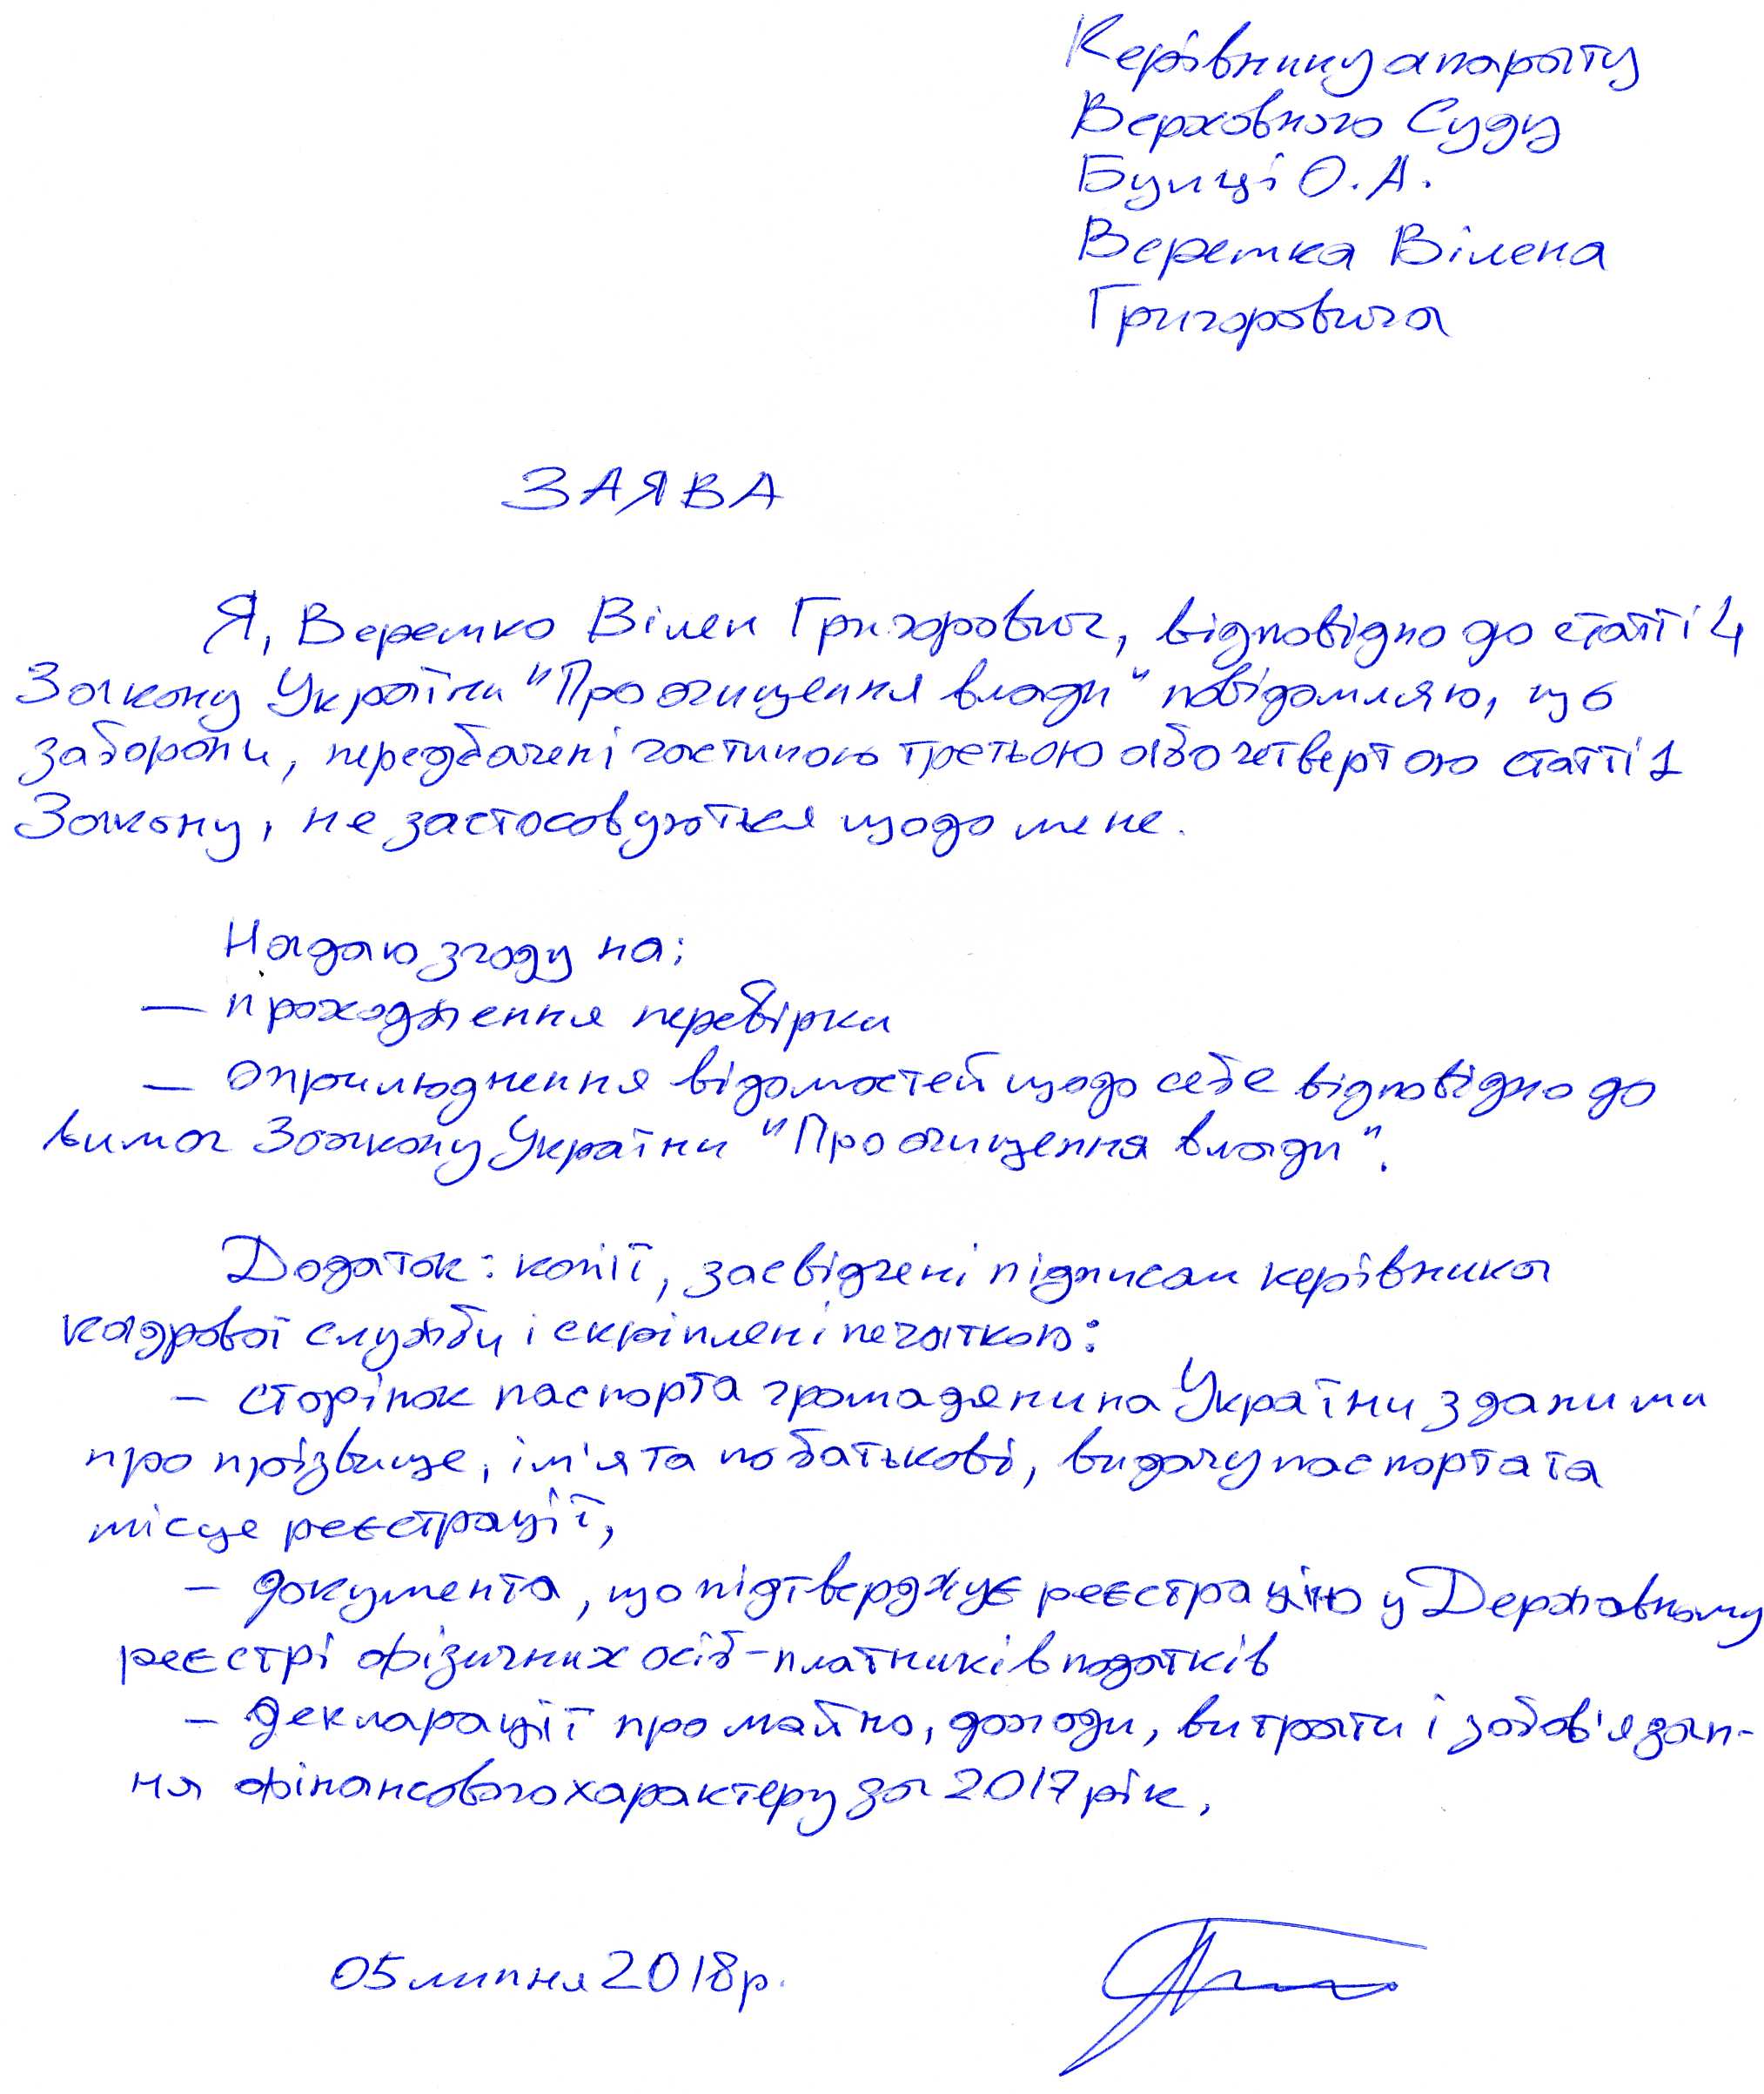 Керівнику апарату
Верховного Суду
Булці О.А.
Веремка Вілена
Григоровича
ЗАЯВА
Я, Веремко Вілен Григорович, відповідно до статті 4
Закону України "Про очищення влади" повідомляю, що
заборони, передбачені частиною третьою або четвертою статті 1
Закону, не застосовуються щодо мене.
Надаю згоду на:
— проходження перевірки
— оприлюднення відомостей щодо себе відповідно до
вимог Закону України "Про очищення влади".
Додаток: копії, засвідчені підписом керівника
кадрової служби і скріплені печаткою:
- сторінок паспорта громадянина України з даними
про прізвище, ім'я та по батькові, видачу паспорта та
місце реєстрації,
- документа, що підтверджує реєстрацію у Державному
реєстрі фізичних осіб-платників податків
- декларації про майно, доходи, витрати і зобов'язан-
ня фінансового характеру за 2017 рік.
05 липня 2018р.